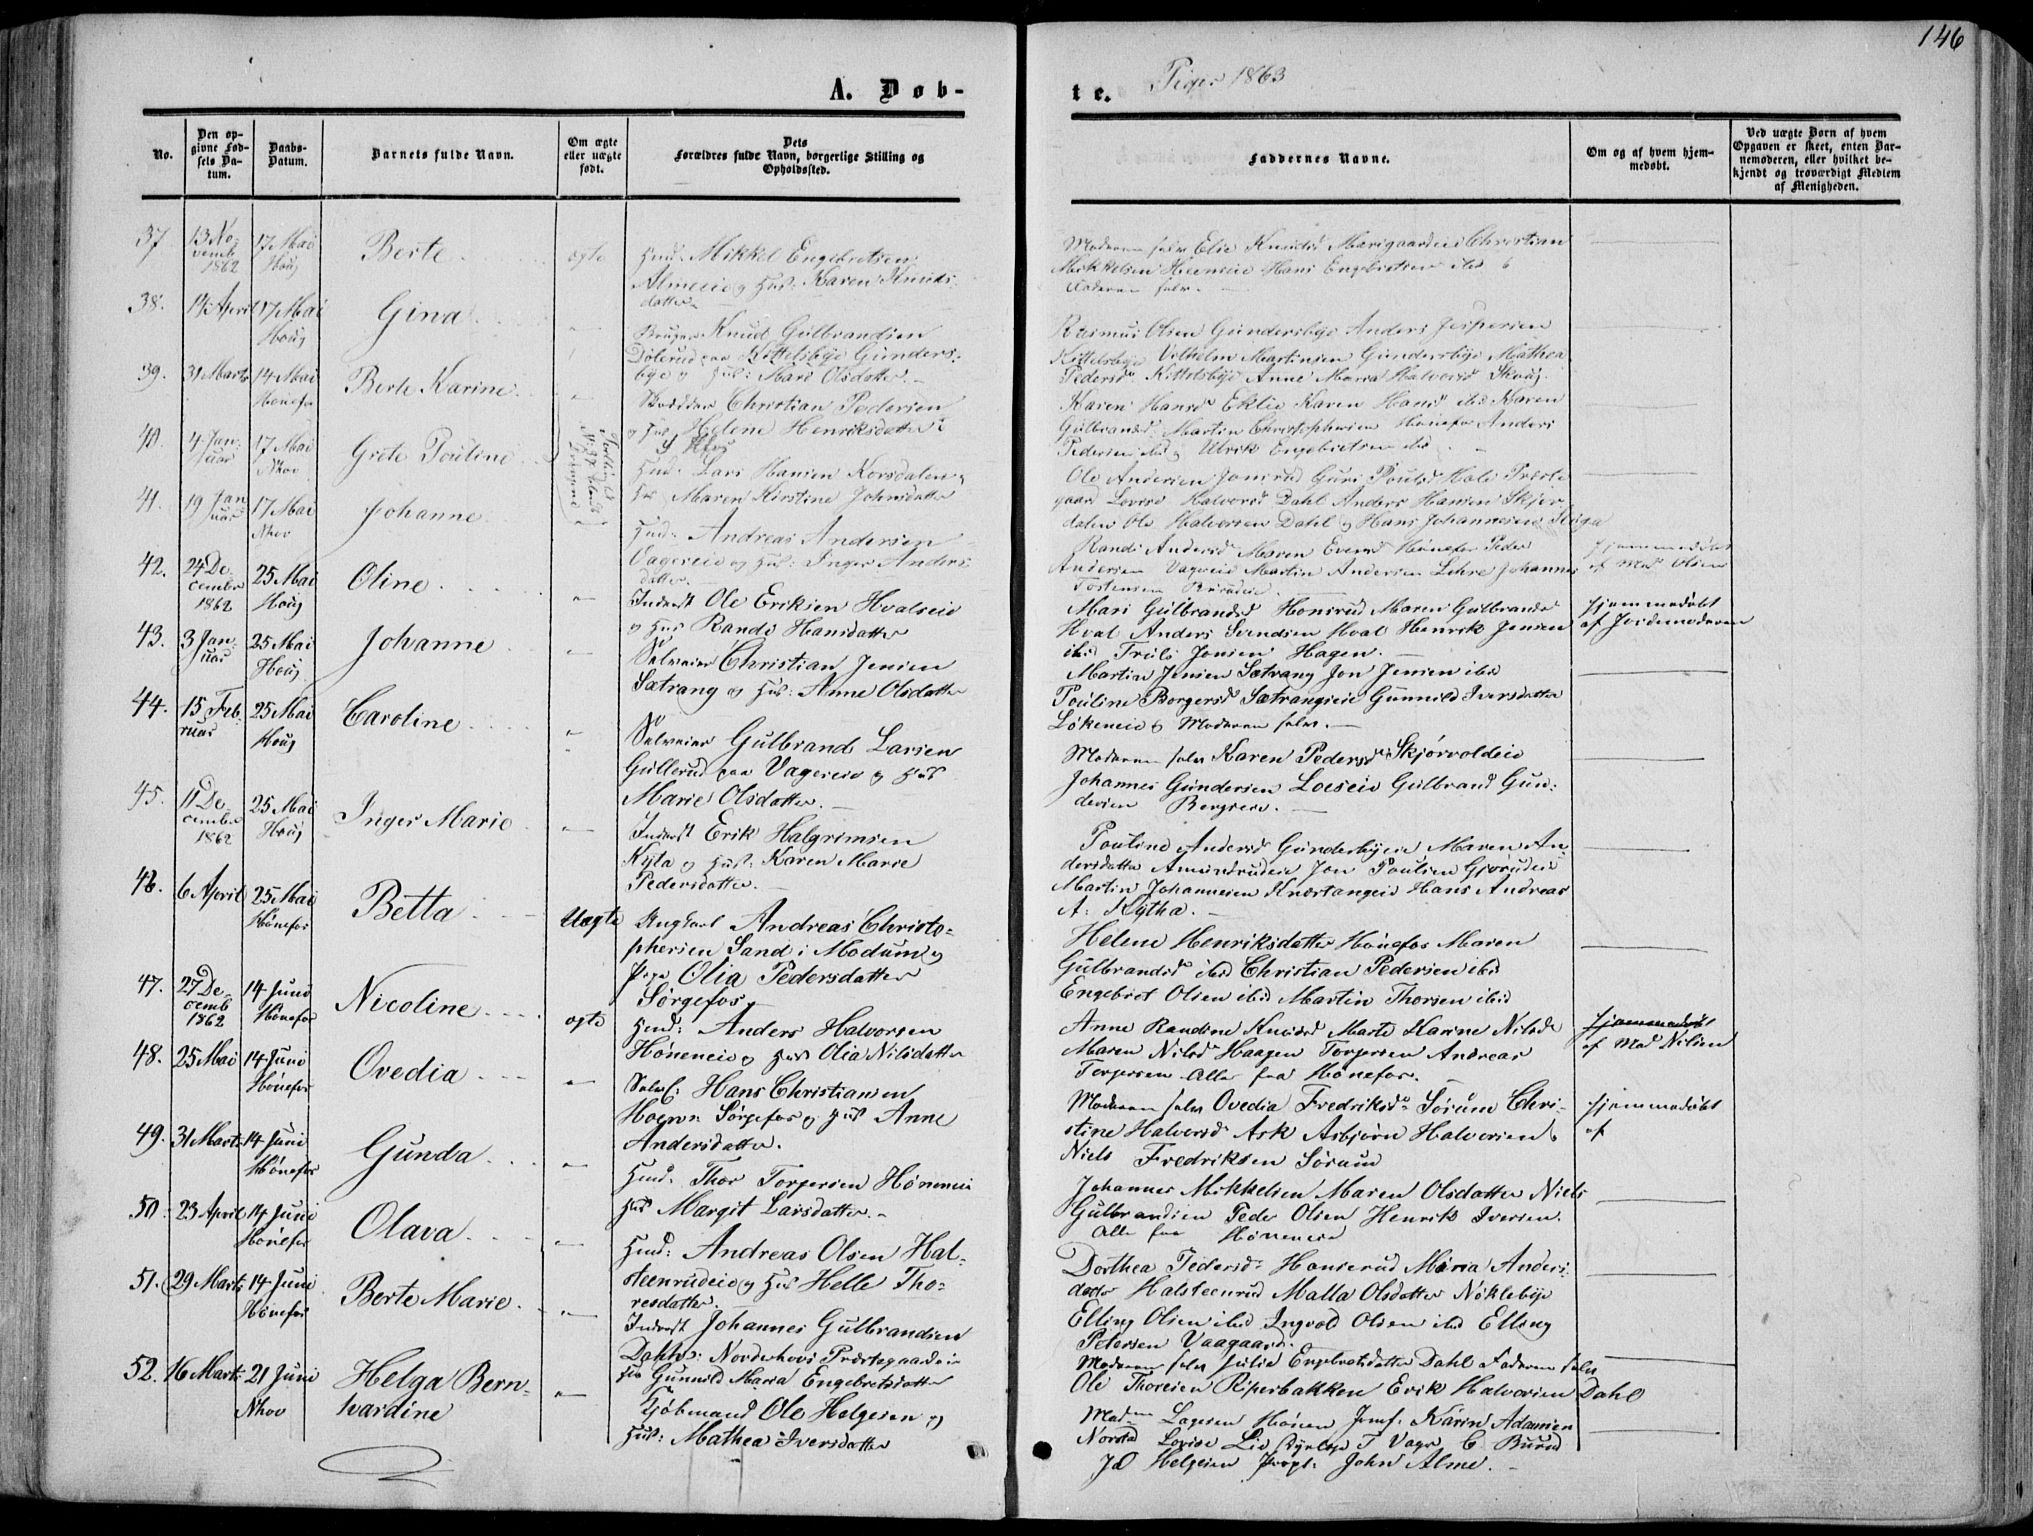 146
A. Døb-
te. Piger 1863
No.
Den op-
givne Fød-
sels Da-
tum.
Daabs-
Datum.
Barnets fulde Navn.
Om ægte
eller uægte
født.
Dets
Forældres fulde Navn, borgerlige Stilling og
Opholdssted.
Faddernes Navne.
Om og af hvem hjem-
medøbt.
Ved uægte Børn af hvem
Opgaven er skeet, enten Bar-
nemoderen, eller hvilket be-
kjendt og troværdigt Medlem
af Menigheden.
37. 13 No-
vemb
1862
17 Mai
Houg
Berte
ægte
Huusm: Mikkel Engebretsen
Almeeie og Hus: Karen Knuds-
datter
Moderen selv Elie Knudsd Mærigaardeie Christian
Mikkelsen Heeneeie Hans Engebretsen ibid &
Faderen selv
38. 14 April 17 Mai
Houg
Gina
Bruger Knud Gulbrandsen
Dølerud paa Kittelsbye Gunders-
bye og Hus: Mari Olsdatter
Rasmus Olsen Gundersbye Anders Jespersen
Kittelsbye Vilhelm Martinsen Gundersbye Mathea
Pedersd Kittelsbye Anne Maria Halvorsd Skoug
39. 31 Marts 14 Mai
Hønefos
Berte Karine
Skrædder Christian Pedersen
og Hus Helene Henriksdatter
Karen Hansd Eklie Karen Hansd ibid Karen
Gulbrandsd Martin Christophersen Hønefos Anders
Pedersen ibid og Ulrik Engebretsen ibid
40. 4 Jan-
uar
17 Mai
Nhov
Grete Pouline
Huusm: Lars Hansen Korsdalen og
Hus Maren Kirstine Johnsdatter
Ole Andersen Jonsrud Guri Poulsd Hole Præste
gaard Lovise Halvorsd Dahl Anders Hansen Skjer
dalen Ole Halvorsen Dahl og Hans Johannesen
41. 19 Jan
uar
17 Mai
Nhov
Johanne
Huusm: Andreas Andersen
Vagereie og Hus: Inger Anders-
datter
Randi Andersd Maren Eversd Hønefos Peder
Andersen Vageeie Martin Andersen Lehre Johannes
Torstensen
Hjemmedøbt
af Mad Olsen
42. 24 De-
cember
1862
25 Mai
Houg
Oline
Inderst Ole Eriksen Hvalseie
og Hus Randi Hansdatter
Mari Gulbrandsd Honsrud Maren Gulbrandsd
Hval Anders Svendsen Hval Henrik Jensen
ibid Truls Jonsen Hagen
Hjemmedøbt
af Jordemoderen
43. 3 Jan-
uar
25 Mai
Houg
Johanne
Selveier Christian Jensen
Sætrang og Hus: Anne Olsdatter
Martin Jensen Sætrang Jon Jensen ibid
Pouline Borgersd Sætrangseie Gunnild Iversdatter
Løkeneie & Moderen selv
44. 15 Feb.
ruar
25 Mai
Houg
Caroline
Selveier Gulbrand Larsen
Gullerud paa Vagereie og Hus
Marie Olsdatter
Moderen selv Karen Pedersd Skjørvoldeie
Johannes Gundersen Loeseie Gulbrand Gun-
dersen
45. 11 De-
cember
1862
25 Mai
Houg
Inger Marie
Inderst Erik Halgrimsen
Kyta og Hus: Karen Marie
Pedersdatter
Pouline Andersd Gundersbyeie Maren An
dersdatter Amundrudeie Jon Poulsen Gjørudeie
Martin Johannesen Knestangeie Hans Andreas
A: Kytha
46. 6 April 25 Mai
Hønefos
Betta
Uægte
Ungkarl Andreas Christo-
phersen Sand i Modum og
Pige Olia Pedersdatter
Sørgefos
Helene Henriksdatter Hønefos Maren
Gulbrandsd ibid Christian Pedersen ibid
Engebret Olsen ibid Martin Thorsen ibid
47. 27 De-
cemb
1862
14 Juni
Hønefos
Nicoline
ægte
Huusm: Anders Halvorsen
Høneneie og Hus Olia Nilsdatter
Anne Randine Knudsd Marte Karine Nilsd
Maren Nilsd Haagen Torgersen Andreas
Torgersen Alle fra Hønefos
Hjemmedøbt
af Mad Nilsen
48. 25 Mai 14 Juni
Hønefos
Ovedia
Hans Christiansen
Sørgefos og Hus Anne
Andersdatter
Moderen selv Ovedia Fredriksd Sørum Chri-
stine Halvorsd Ask Asbjørn Halvorsen
Niels Fredriksen Sørum
Hjemmedøbt
af
49. 31 Marts 14 Juni
Hønefos
Gunda
Huusm. Thor Torgersen Høneneie
Hus Margit Larsdatter
Johannes Mikkelsen Maren Olsdatter Niels
Gulbrandsen Peder Olsen Henrik Iversen
Alle fra Høneneie
50. 23 April 14 Juni
Hønefos
Olava
Huusm: Andreas Olsen Hal-
steenrudeie og Hus Helle Tho-
resdatter
Dorthea Pedersd Honserud Maria Anders-
datter Halsteenrud Malla Olsdatter Nøklebye
Elling Olsen ibid Ingvold Olsen ibid Elling
Petersen Vaagaard
51. 29 Marts 14 Juni
Hønefos
Berte Marie
Inderst Johannes Gulbrandsen
Dahl: Norderhovs Præstegaardeie
Hus Gunnild Maria Engebretsdatter
Moderen selv Julie Engebretsdatter Dahl Faderen selv
Ole Thoresen Riperbakken Erik Halvorsen Dahl
52. 16 Marts 21 Juni
Nhov
Helga Bern-
hardine
Kjøbmand Ole Helgesen og
Hus: Mathea Iversdatter
Madm Lagesen Hønen Jomf. Karin Adamsen
Norstad Lovise Lie T Vager C Burud
Helgesen John Alme.